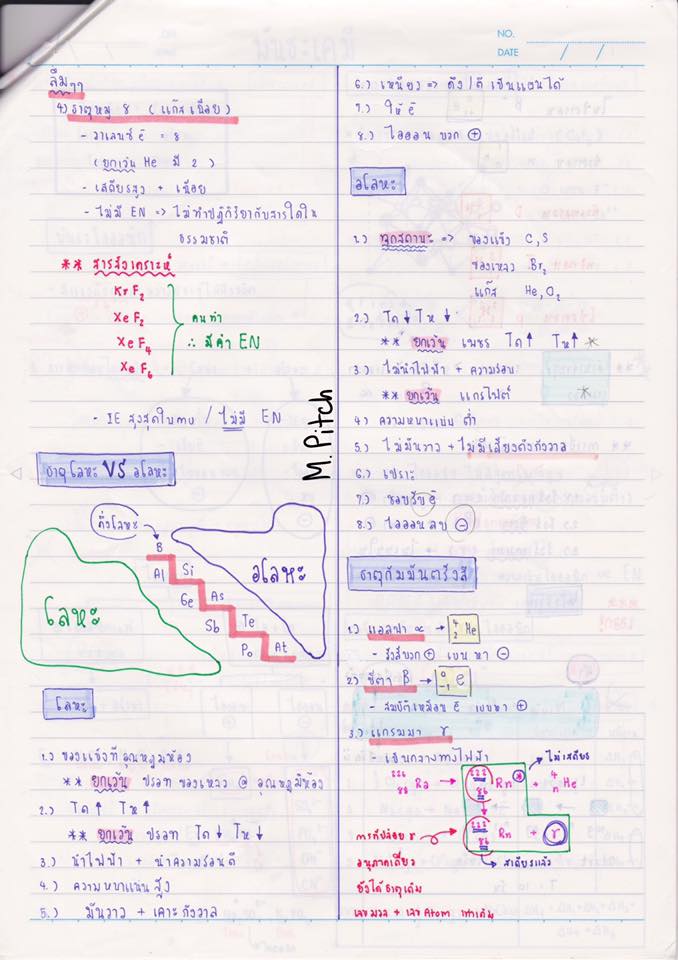 NO.
DATE / /
ลืมๆๆ
4.) ธาตุหมู่ 8 (แก๊สเฉื่อย)
- วาเลนซ์ e̅ = 8
(ยกเว้น He มี 2)
- เสถียรสูง + เฉื่อย
- ไม่มี EN => ไม่ทำปฏิกิริยากับสารใดใน
ธรรมชาติ
** สารสังเคราะห์
KrF₂
XeF₂
XeF₄
XeF₆
คนทำ
∴ มีค่า EN
- IE สูงสุดในคาบ / ไม่มี EN
ธาตุโลหะ VS อโลหะ
กึ่งโลหะ
B
Al Si
Ge As
Sb Te
Po At
โลหะ
อโลหะ
โลหะ
1.) ของแข็งที่อุณหภูมิห้อง
** ยกเว้น ปรอท ของเหลว @ อุณหภูมิห้อง
2.) Tด ↑ Tห ↑
** ยกเว้น ปรอท Tด ↓ Tห ↓
3.) นำไฟฟ้า + นำความร้อนดี
4.) ความหนาแน่นสูง
5.) มันวาว + เคาะกังวาล
M.Pitch
6.) เหนียว => ดึง/ตีเป็นแผ่นได้
7.) ให้ e̅
8.) ไอออน บวก ⊕
อโลหะ
1.) ทุกสถานะ => ของแข็ง C,S
ของเหลว Br₂
แก๊ส He,O₂
2.) Tด ↓ Tห ↓
** ยกเว้น เพชร Tด ↑ Tห ↑ *
3.) ไม่นำไฟฟ้า + ความร้อน
** ยกเว้น แกรไฟต์ *
4.) ความหนาแน่นต่ำ
5.) ไม่มันวาว + ไม่มีเสียงดังกังวาล
6.) เปราะ
7.) ชอบรับ e̅
8.) ไอออนลบ ⊖
ธาตุกัมมันตรังสี
1.) แอลฟา α → ⁴₂He
- รังสีบวก ⊕ เบนหา ⊖
2.) บีตา β → ⁰₋₁e
- สมบัติเหมือน e̅ เบนหา ⊕
3.) แกรมมา γ
- เป็นกลางทางไฟฟ้า
ไม่เสถียร
²²⁶₈₈Ra → ²²²₈₆Rn* + ⁴ₙHe
²²²₈₆Rn + γ
เสถียรแล้ว
การที่ปล่อย γ
อนุภาคเดี่ยว
ยังได้ธาตุเดิม
เลขมวล + เลข Atom เท่าเดิม